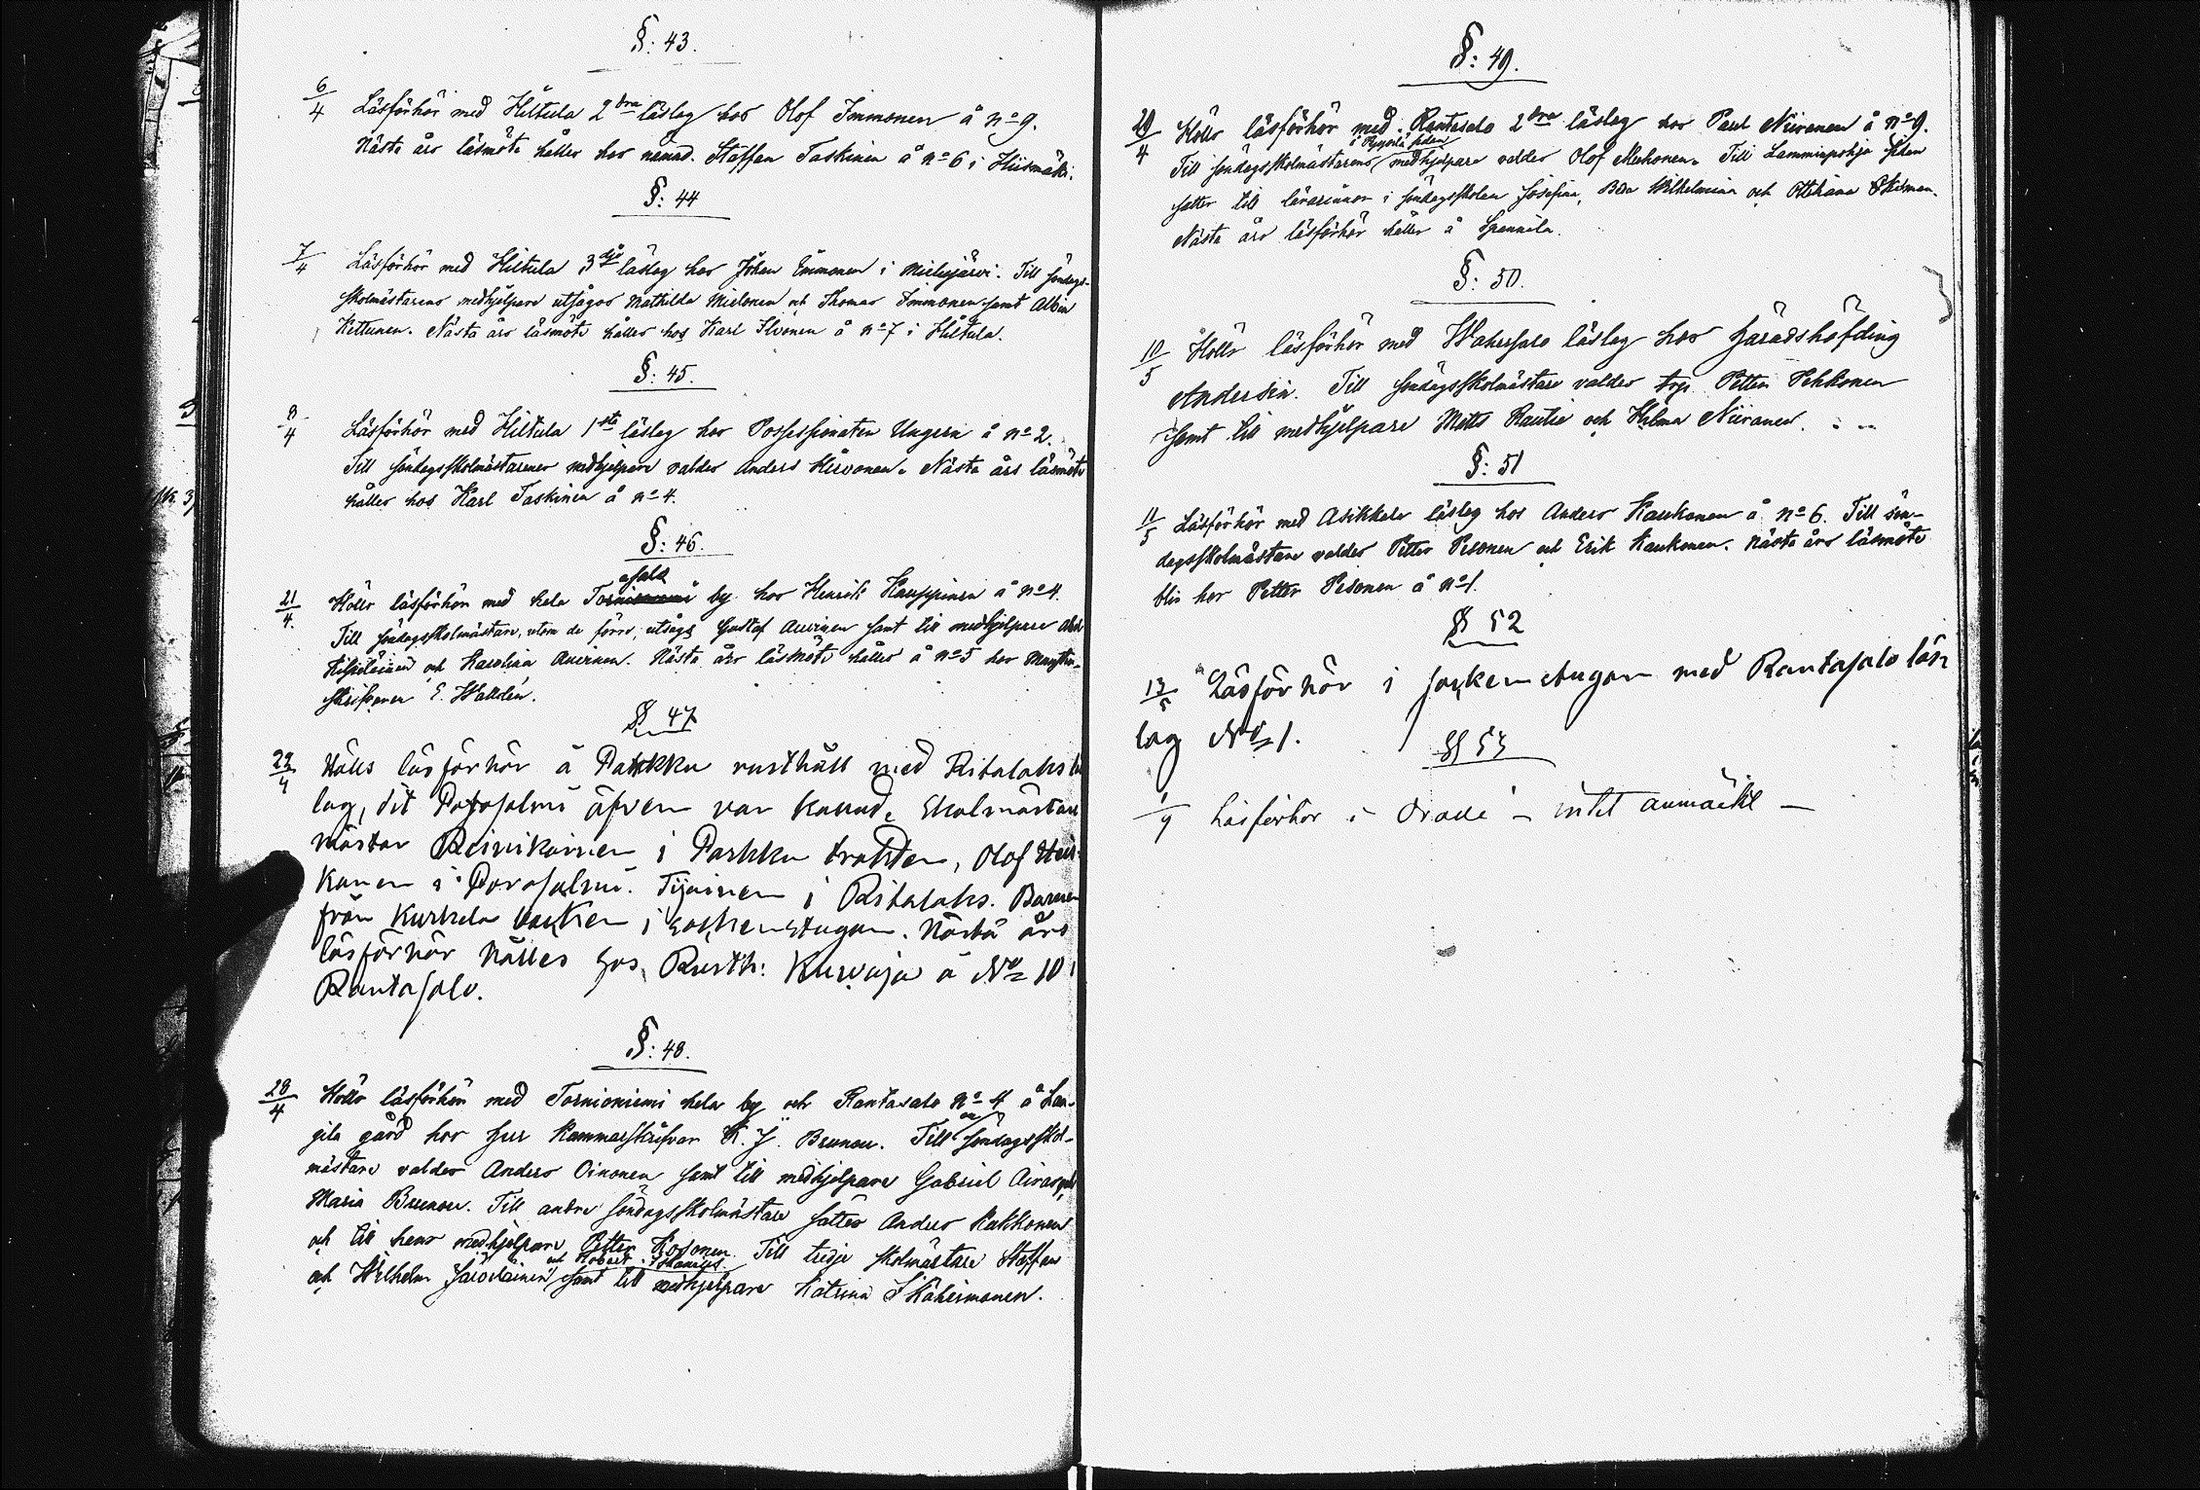 §: 43.
6/4 Läsförhör med Hiltula 2dra läslag hos Olof Immonen å No 9.
Nästa års läsmöte hålles hos nämnd. Staffan Taskinen å No 6 i Hiismäki.
§: 44
7/4 Läsförhör med Hiltula 3dje läslag hos Johan Immonen i Mielusjärvi. Till söndags-
skolmästarens medhjelpare utsågos Mathilda Mielonen och Thomas Immonen samt Albin
Kettunen. Nästa års läsmöte hålles hos Karl Ilvonen å No 7 i Hiltula.
§: 45.
8/4 Läsförhör med Hiltula 1sta läslag hos Possessionaten Ungern å No 2.
Till söndagsskolmästarenes medhjelpare valdes Anders Hirvonen. Nästa års läsmöte
hålles hos Karl Taskinen å No 4.
§: 46.
asalo
21/4. Hölls läsförhör med hela by hos Henrik Kauppinen å No 4.
Till söndagsskolmästare, utom de förre, utsågs Gustaf Auvinen samt till medhjelpare
och Karolina Auvinen. Nästa års läsmöte hålles å No 5 hos
E. Walldén.
§ 47
22/4 Hölls läsförhör å Parkku rusthåll med Ritalaks
lag, dit Porosalmi äfven var kallad. Skolmästare
Reinikainen i Parkku trakten, Olof
kanen i Porosalmi. Tijainen i Ritalaks.
från Kurkela backen i sockenstugan. Nästa års
läsförhör hålles hos Rusth: Kurvaja å No 10 i
Rantasalo.
§: 48.
28/4 Hölls läsförhör med Tornioniemi hela by och Rantasalo No 4 å Lau-
gila gård hos Herr Kammarskrifvar K. J. Brunou. Till en söndagsskol-
mästare valdes Anders Oinonen samt till medhjelpare Gabriel och
Maria Brunou. Till andra söndagsskolmästare sattes Anders Kakkonen
och till hans medhjelpare Petter Kosonen. Till tredje skolmästare Staffan
och Robert Johannes
och Wilhelm samt till medhjelpare Katrina
§: 49.
29/4 Hölls läsförhör med Rantasalo 2dra läslag hos Paul Niiranen å No 9.
Till söndagsskolmästarens medhjelpare valdes Olof Makonen. Till Lamminpohja sidan
sattes till lärarinnor i söndagsskolan Josefina, Wilhelmina och
Nästa års läsförhör hålles å
§: 50.
10/5 Hölls läsförhör med läslag hos häradshöfding
Andersin. Till söndagsskolmästare valdes torp. Petter Pekkonen
samt till medhjelpare Matts Rautio och Helma Niiranen.
§: 51
11/5 Läsförhör med Asikkala läslag hos Anders Kaukonen å No 6. Till sön-
dagsskolmästare valdes Petter Pesonen och Erik Kaukonen. Nästa års läsmöte
blir hos Petter Pesonen å No 1.
§ 52
13/5 Läsförhör i sockenstugan med Rantasalo läs
lag No 1.
§ 53
1/9 Läsförhör i - intet anmärkt -